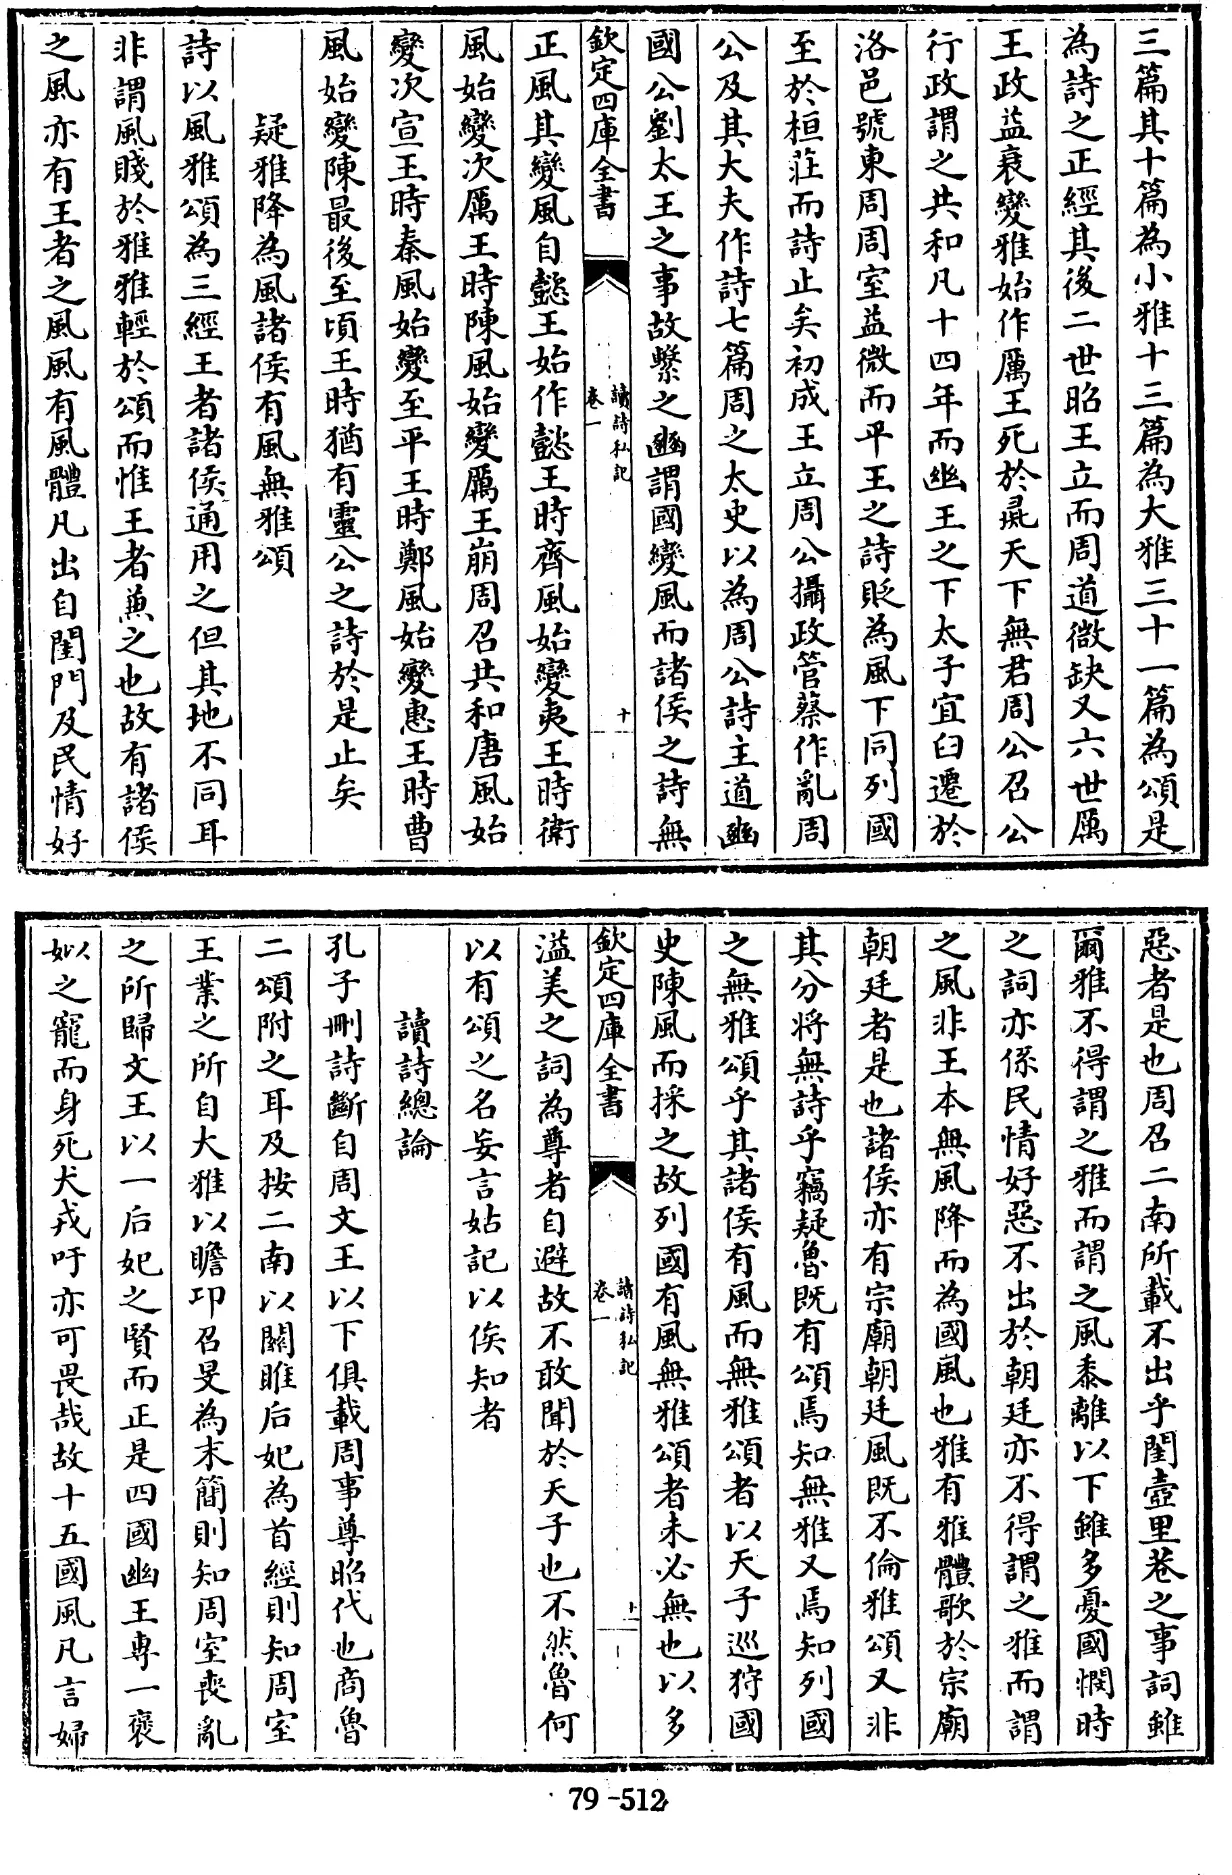 三篇其十篇為小雅十三篇為大雅三十一篇為頌是
為詩之正經其後二世昭王立而周道微缺又六世厲
王政益衰變雅始作厲王死於彘天下無君周公召公
行政謂之共和凡十四年而幽王之下太子宜臼遷於
洛邑號東周周室益微而平王之詩貶為風下同列國
至於桓莊而詩止矣初成王立周公攝政管蔡作亂周
公及其大夫作詩七篇周之太史以為周公詩主道豳
國公劉太王之事故繫之豳謂國變風而諸侯之詩無
欽定四庫全書
讀詩私記
卷一
十
正風其變風自懿王始作懿王時齊風始變夷王時衛
風始變次厲王時陳風始變厲王崩周召共和唐風始
變次宣王時秦風始變至平王時鄭風始變惠王時曹
風始變陳最後至頃王時猶有靈公之詩於是止矣
疑雅降為風諸侯有風無雅頌
詩以風雅頌為三經王者諸侯通用之但其地不同耳
非謂風賤於雅雅輕於頌而惟王者兼之也故有諸侯
之風亦有王者之風風有風體凡出自閨門及民情好
惡者是也周召二南所載不出乎閨壼里巷之事詞雖
爾雅不得謂之雅而謂之風黍離以下雖多憂國憫時
之詞亦係民情好惡不出於朝廷亦不得謂之雅而謂
之風非王本無風降而為國風也雅有雅體歌於宗廟
朝廷者是也諸侯亦有宗廟朝廷風既不倫雅頌又非
其分將無詩乎竊疑魯既有頌焉知無雅又焉知列國
之無雅頌乎其諸侯有風而無雅頌者以天子巡狩國
史陳風而採之故列國有風無雅頌者未必無也以多
欽定四庫全書
讀詩私記
卷一
十一
溢美之詞為尊者自避故不敢聞於天子也不然魯何
以有頌之名妄言姑記以俟知者
讀詩總論
孔子刪詩斷自周文王以下俱載周事尊昭代也商魯
二頌附之耳及按二南以關雎后妃為首經則知周室
王業之所自大雅以瞻卬召旻為末簡則知周室喪亂
之所歸文王以一后妃之賢而正是四國幽王專一褒
姒之寵而身死犬戎吁亦可畏哉故十五國風凡言婦
79-512